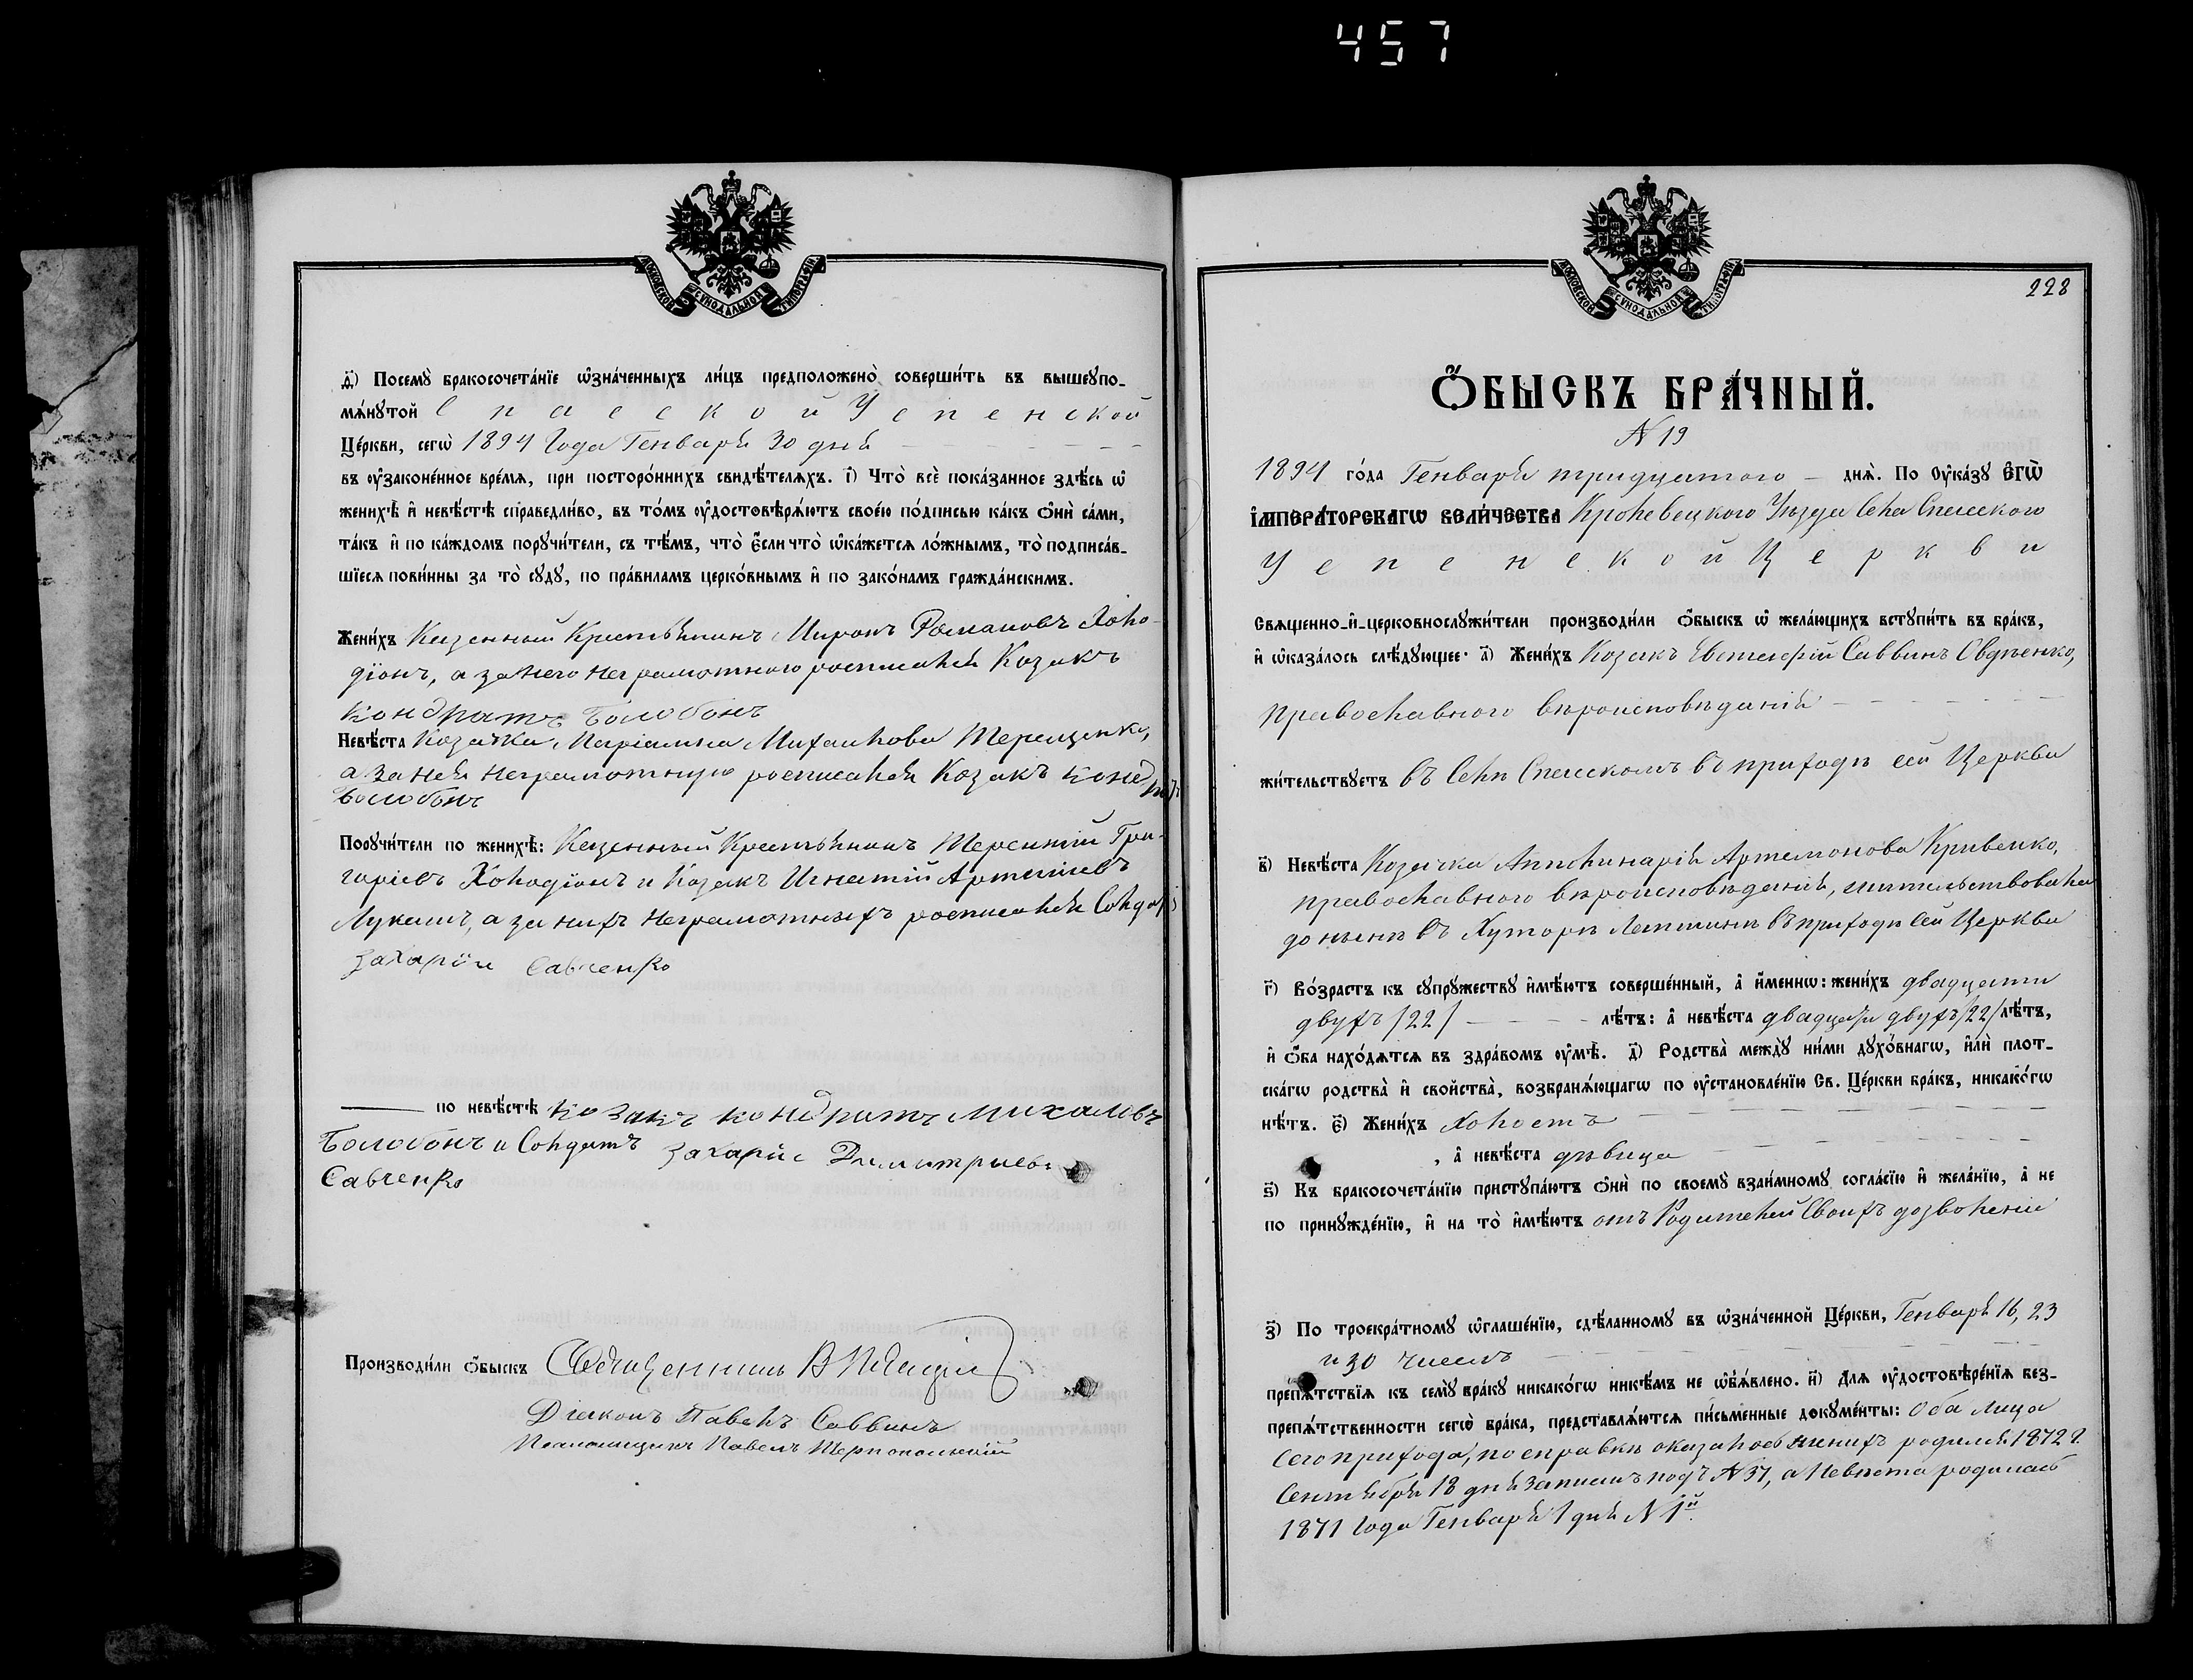 457
МОСКОВСКОЙ СѴНОДАЛЬНОЙ ТИПОГРАФІИ
ѳ҃) Посемꙋ̀ бракосочета́нїе ѡ҆зна́ченныхъ ли́цъ предположено̀ соверши́ть въ вышеꙋпо-
мѧ́нꙋтой Спасской Успенской
Це́ркви, сегѡ̀ 1894 Года Генваря 30 дня
въ ᲂу҆зако́ненное вре́мѧ, при посторо́ннихъ свидѣ́телѧхъ. і҃) Что̀ всѐ пока́занное здѣ́сь ѡ҆
женихѣ̀ и҆ невѣ́стѣ справедли́во, въ то́мъ ᲂу҆достовѣрѧ́ютъ свое́ю по́дписью ка́къ ѻ҆нѝ са́ми,
та́къ и҆ по ка́ждомъ порꙋчи́тели, съ тѣ́мъ, что̀ є҆́сли что̀ ѡ҆ка́жетсѧ ло́жнымъ, то̀ подписа́в-
шїесѧ пови́нны за то̀ сꙋдꙋ̀, по пра́виламъ церко́внымъ и҆ по зако́намъ гражда́нскимъ.
Жени́хъ Казенный Крестьянинъ Миронъ Романовъ Холо-
діонъ, а за него неграмотного росписался Козакъ
Кондратъ Болобонъ
Невѣ́ста Козачка Маріамна Михаилова Терещенко,
а за нея неграмотную росписался Козакъ Кондратъ
Болобонъ
Порꙋчи́тели по женихѣ̀: Казенный Крестьянинъ Терентій Гри-
горіевъ Холодіонъ и Козакъ Игнатій Артеміевъ
Лукашъ, а за нихъ неграмотныхъ росписался Солдатъ
Захарій Савченко
по невѣ́стѣ Козакъ Кондратъ Михаловъ
Болобонъ и Солдатъ Захаріе Димитриевъ
Савченко
Производи́ли ѻ҆́быскъ Священникъ В
Діаконъ Павелъ Саввинъ
Псаломщикъ Павелъ Тернопольскій
МОСКОВСКОЙ СѴНОДАЛЬНОЙ ТИПОГРАФІИ
228
Ѻ҆́БЫСКЪ БРА́ЧНЫЙ.
N 19
1894 го́да Генваря тридцатого днѧ̀. По Оу҆ка́зꙋ Є҆ГѠ̀
І҆МПЕРА́ТОРСКАГѠ ВЕЛИ́ЧЕСТВА Кролевецкого Уѣзда Села Спасского
Успенской Церкви
Свѧще́нно-и҆-церковнослꙋжи́тели производи́ли ѻ҆́быскъ ѡ҆ жела́ющихъ встꙋпи́ть въ бра́къ,
и҆ ѡ҆каза́лось слѣ́дꙋющее: а҃) Жени́хъ Козакъ Евстафій Саввинъ Овдѣенко,
православного вѣроисповѣданія
жи́тельствꙋетъ въ Селѣ Спасскомъ въ приходѣ сей Церкви
в҃) Невѣ́ста Козачка Апполинарія Артемонова Кривенко,
православного вѣроисповѣданія, жительствовала
до нынѣ въ Хуторѣ Лапшинѣ въ приходѣ сей Церкви
г҃) Во́зрастъ къ сꙋпрꙋ́жествꙋ и҆мѣ́ютъ соверше́нный, а҆ и҆́меннѡ: жени́хъ двадцати
двухъ /22/ лѣ́тъ: а҆ невѣ́ста двадцати двухъ /22/ лѣ́тъ,
и҆ ѻ҆́ба нахо́дѧтсѧ въ здра́вомъ ᲂу҆мѣ̀. д҃) Родства̀ междꙋ̀ ни́ми дꙋхо́внагѡ, и҆лѝ плот-
ска́гѡ родства̀ и҆ свойства̀, возбранѧ́ющагѡ по ᲂу҆становле́нїю Св. Це́ркви бра́къ, никако́гѡ
нѣ́тъ. є҃) Жени́хъ Холостъ
, а҆ невѣ́ста дѣвица
ѕ҃) Къ бракосочета́нїю пристꙋпа́ютъ ѻ҆нѝ по своемꙋ̀ взаи́мномꙋ согла́сїю и҆ жела́нїю, а҆ не
по принꙋжде́нїю, и҆ на то̀ и҆мѣ́ютъ отъ Родителей Своихъ дозволеніи
з҃) По троекра́тномꙋ ѡ҆глаше́нїю, сдѣ́ланномꙋ въ ѡ҆зна́ченной Це́ркви, Генваря 16, 23
и 30 чиселъ
препѧ́тствїѧ къ семꙋ̀ бра́кꙋ никако́гѡ нике́мъ не ѡ҆б̾ѧ́влено. и҃) Длѧ ᲂу҆достовѣре́нїѧ без-
препѧ́тственности сегѡ̀ бра́ка, представлѧ́ютсѧ пи́сьменные докꙋме́нты: Оба лица
Сего прихода, по справкѣ оказалось женихъ родился 1872 г.
Сентября 18 дня записанъ подъ N 37, а Невѣста родилась
1871 Года Генваря 1 дня N 1й.